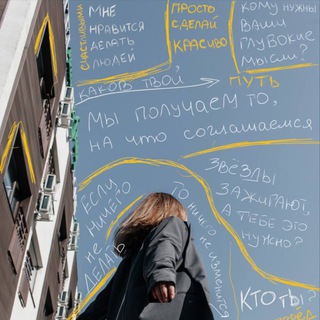 СЧАСТЛИВЫМИ
МНЕ
НРАВИТСЯ
ДЕЛАТЬ
ЛЮДЕЙ
ПРОСТО
СДЕЛАЙ
КРАСИВО
КОМУ НУЖНЫ
ВАШИ
ГЛУБОКИЕ
МЫСЛИ?
КАКОВ ТВОЙ
ПУТЬ
МЫ ПОЛУЧАЕМ ТО,
НА ЧТО СОГЛАШАЕМСЯ
ЗВЁЗДЫ
ЗАЖИГАЮТ,
А ТЕБЕ ЭТО
НУЖНО?
ЕСЛИ
НИЧЕГО
НЕ
ДЕЛАТЬ
ТО НИЧЕГО
НЕ ИЗМЕНИТСЯ
КТО ТЫ?